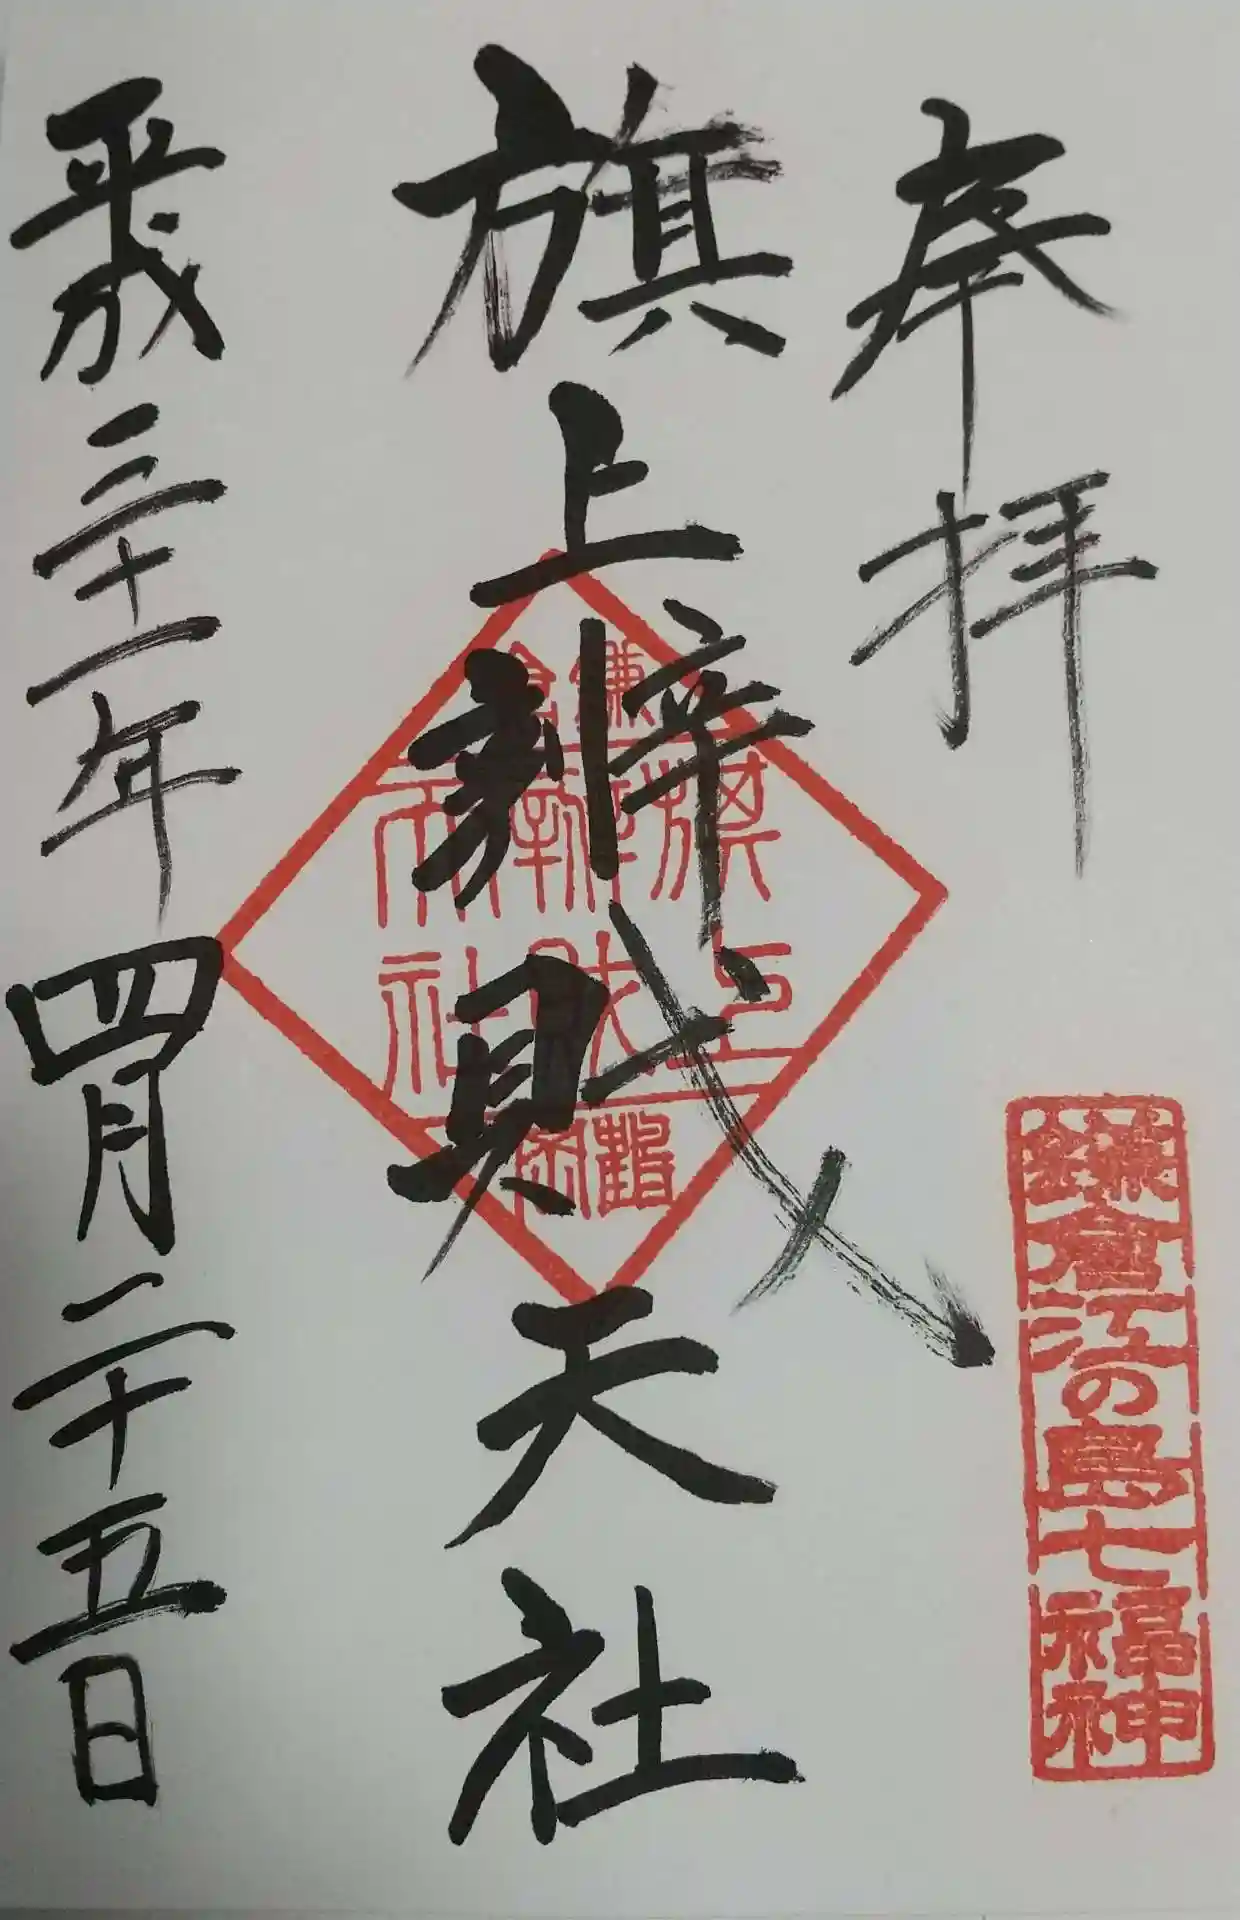 奉拝
鎌倉江の島七福神
旗上辨財天社
鎌倉
旗上
辨財
天社
平成三十一年四月二十五日